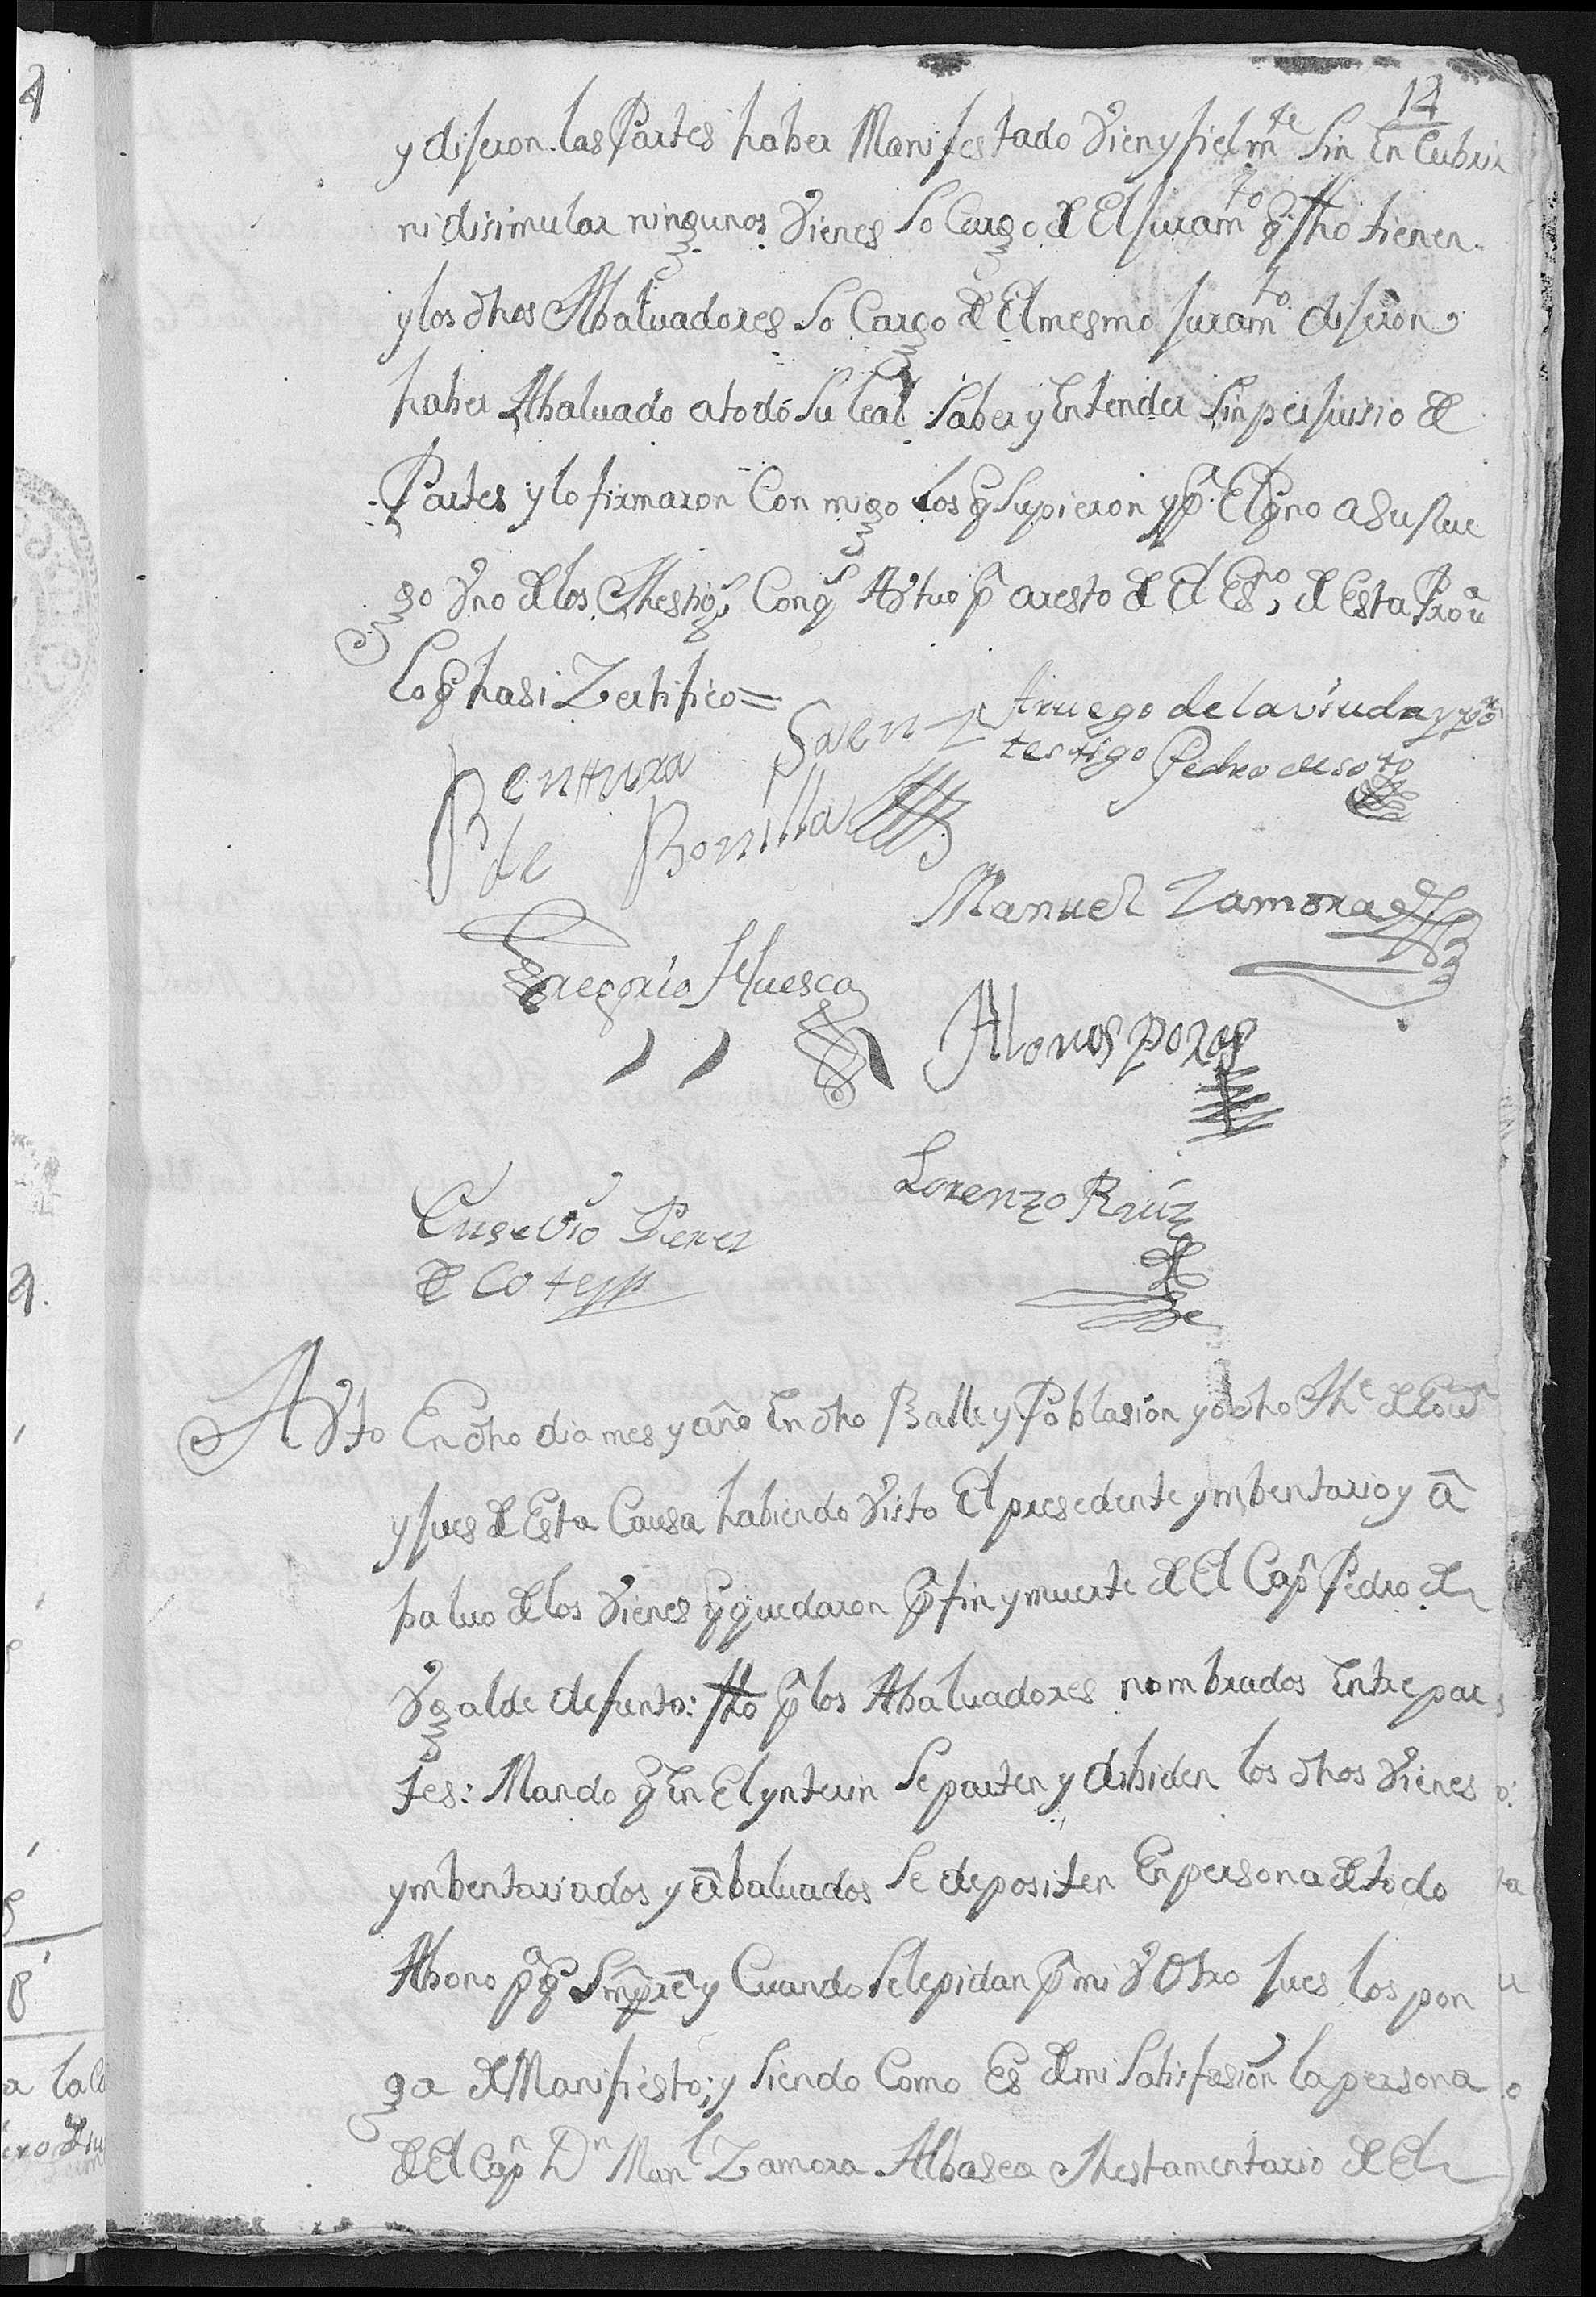 14
y diseron las Partes haber Manifestado Vien y fielmte Sin En Cubrir
ni disimular ningunos Vienes So Cargo de El juramto q fho tienen
y los dhos Abaluadores So Cargo de El mesmo juramto diseron
haber Abaluado a todo Su leal Saber y Entender Sin perjuisio de
Partes y lo firmaron Con migo los q Supieron y p El q no a Su rue
go Vno de los thestigs Con qs Actuo p aresto de El Esno de Esta Prova
lo q hasi Zertifico =
Bentura Saenz
de Bonilla
A ruego de la viuda y por
testigo Pedro de soto
Manuel Zamora
Gregorio Huesca
Alonos poras
Lorenzo Ruiz
Eusevio Perez
de Cote
AVto En dho dia mes y año En dho Balle y Poblasion yo dho The de Govr
y jues de Esta Causa habiendo Visto El presedente ymbentario y a
baluo de los Vienes q quedaron p fin y muerte de El Capn Pedro de
Vgalde defunto: fho p los Abaluadores nombrados Entre par
tes: Mando q En El ynterin Se parten y dibiden los dhos Vienes
ymbentariados y abaluados Se depositen En persona de todo
Abono pa q Smpre y Cuando Se le pidan p mi V Otro jues los pon
ga de Manifiesto; y Siendo Como Es de mi Satisfasion la persona
de El Capn Dn Manl Zamora Albasea thestamentario de El